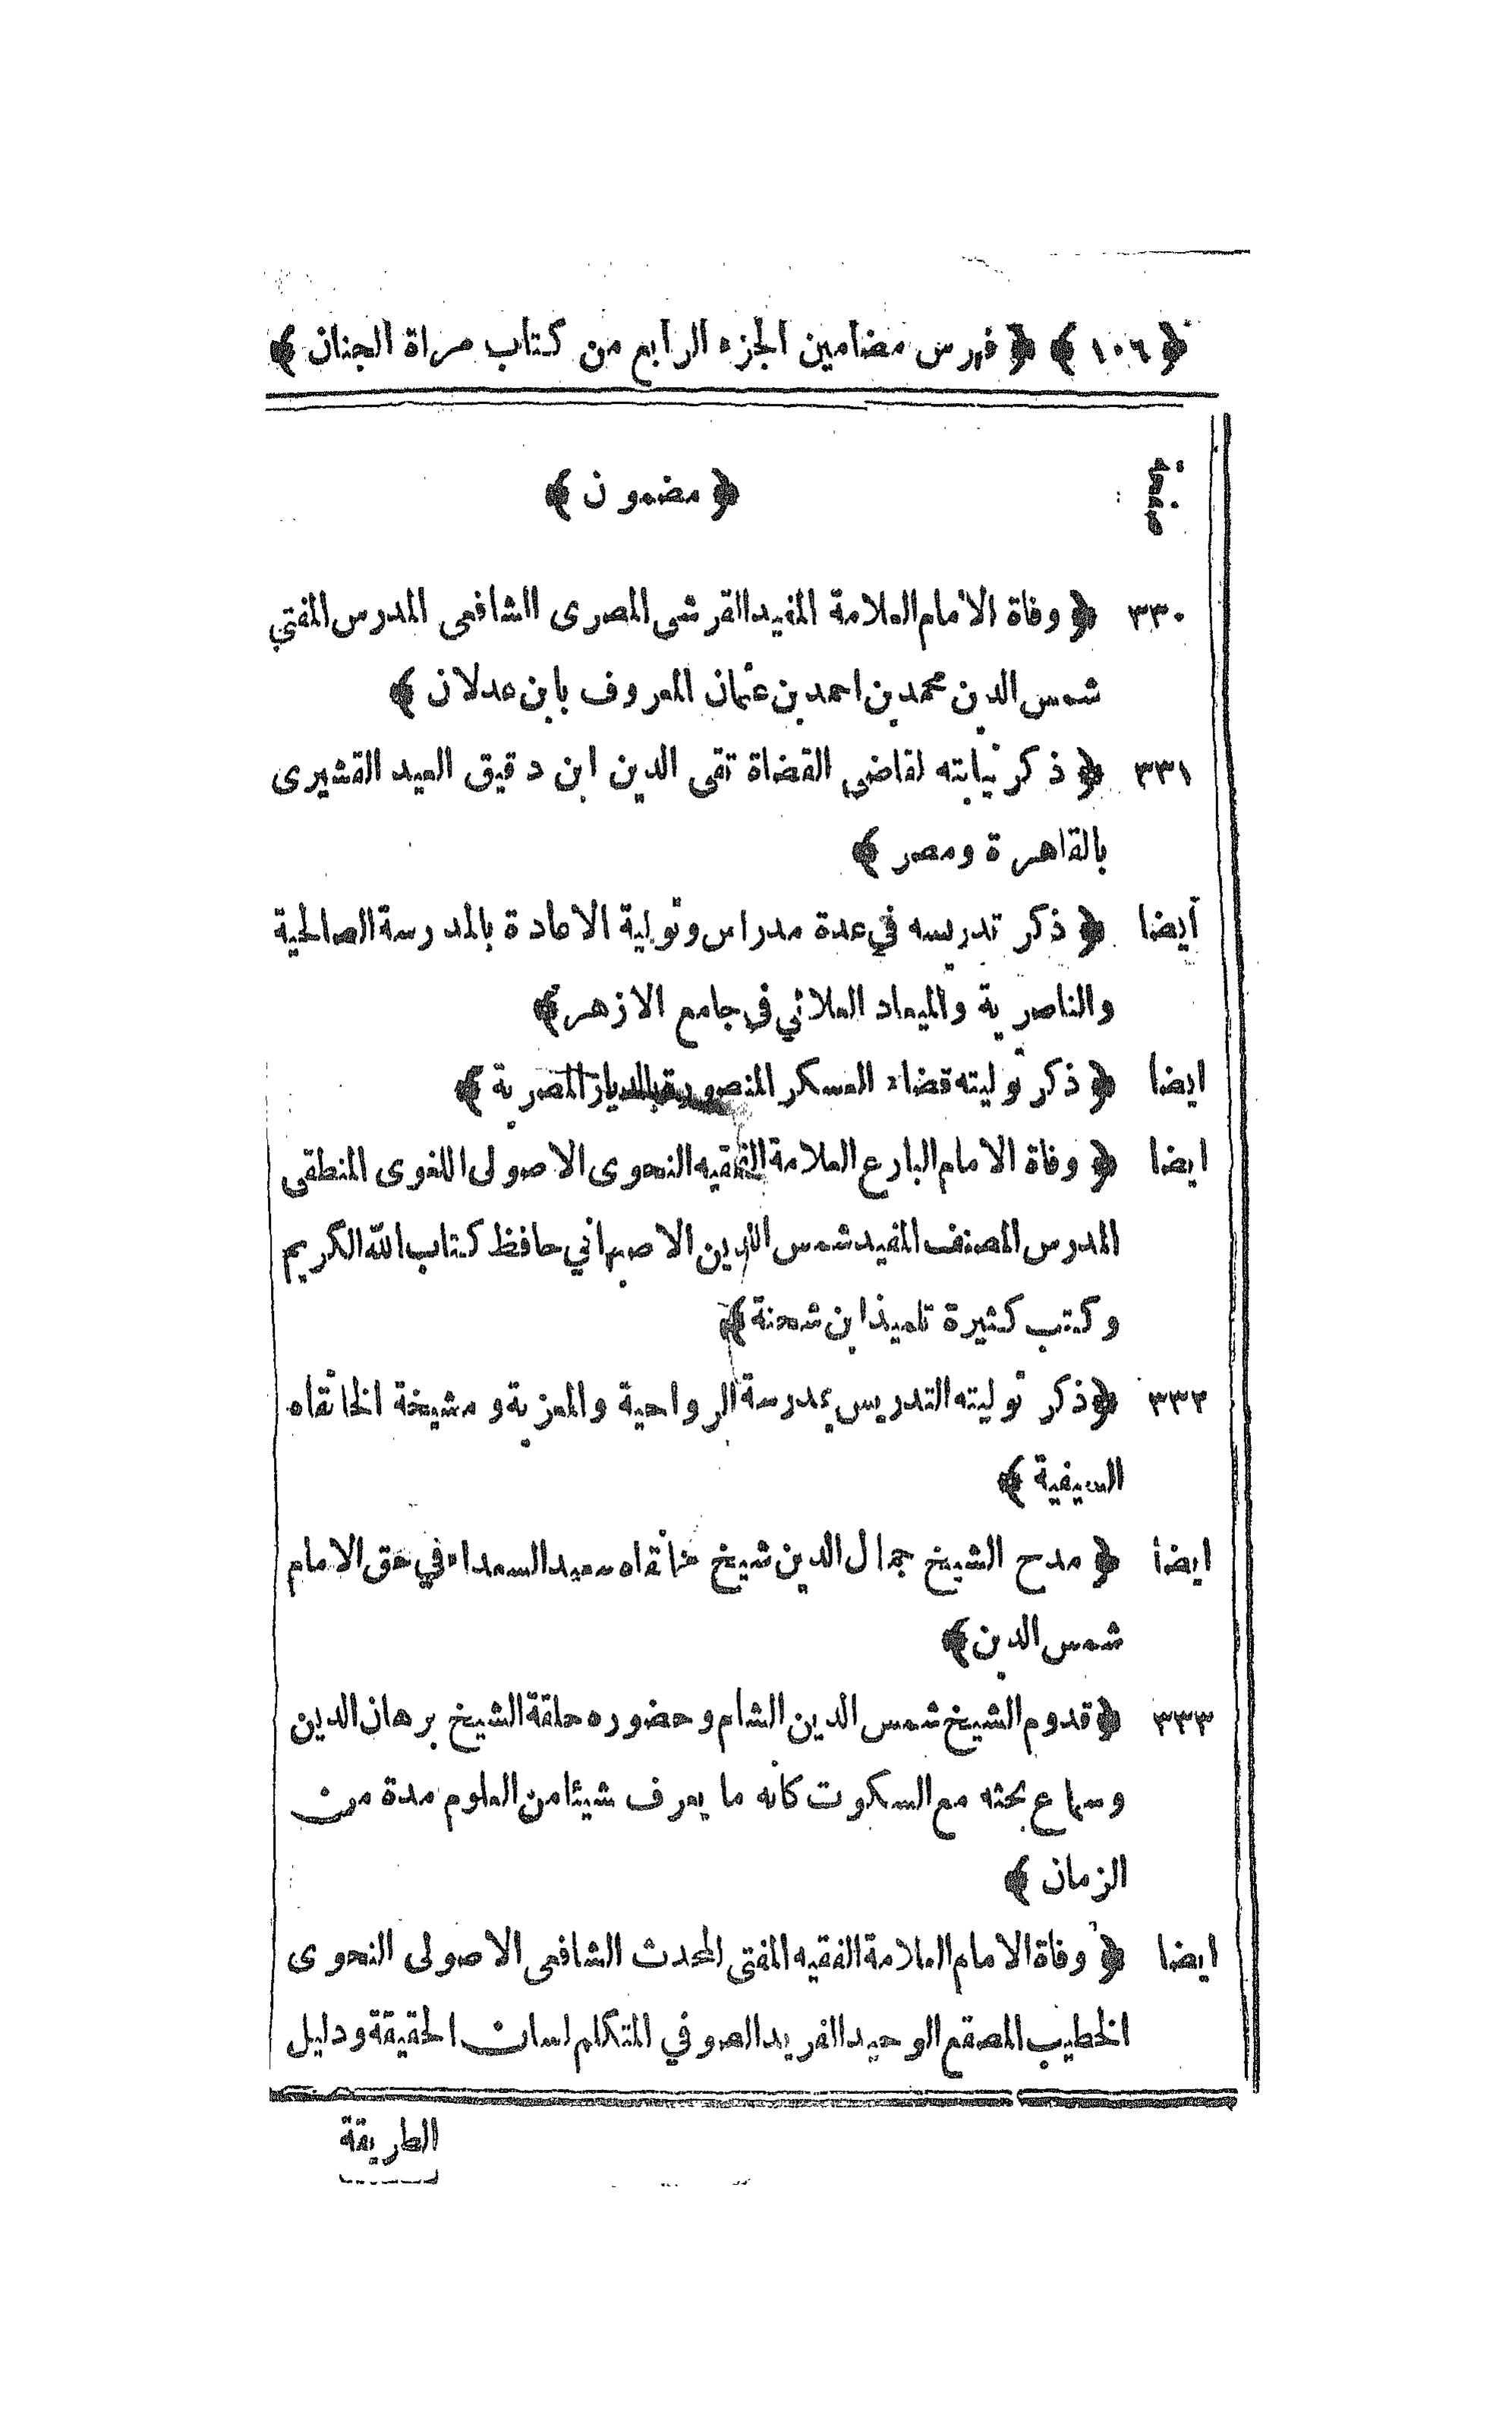 ﴿١٠٦﴾ ﴿فهرس مضامين الجزء الرابع من كتاب مراة الجنان﴾
صفحة ﴿مضمون﴾
٣٣٠ ﴿وفاة الامام العلامة المفيد القرشى المصرى الشافعى المدرس المفتي
شمس الدين محمد بن احمد بن عثمان المعروف بابن عدلان﴾
٣٣١ ﴿ذكر نيابته لقاضى القضاة تقى الدين ابن دقيق العيد القشيرى
بالقاهرة ومصر﴾
أيضا ﴿ذكر تدريسه في عدة مدراس وتولية الاعادة بالمدرسة الصالحية
والناصرية والميعاد العلائي في جامع الازهر﴾
ايضا ﴿ذكر توليته قضاء العسكر المنصورة بالديار المصرية﴾
ايضا ﴿وفاة الامام البارع العلامة الفقيه النحوى الاصولى اللغوى المنطقى
المدرس المصنف المفيد شمس الدين الاصبهاني حافظ كتاب الله الكريم
وكتب كثيرة تلميذ ابن شحنة﴾
٣٣٢ ﴿ذكر توليته التدريس بمدرسة الرواحية والمعزية ومشيخة الخانقاه
السيفية﴾
ايضا ﴿مدح الشيخ جمال الدين شيخ خانقاه سعيد السعداء في حق الامام
شمس الدين﴾
٣٣٣ ﴿قدوم الشيخ شمس الدين الشام وحضوره حلقة الشيخ برهان الدين
وسماع بحثه مع السكوت كانه ما يعرف شيئا من العلوم مدة من
الزمان﴾
ايضا ﴿وفاة الامام العلامة الفقيه المفتى المحدث الشافعى الاصولى النحوى
الخطيب المصقع الوحيد الفريد الصوفي المتكلم لسان الحقيقة ودليل
الطريقة